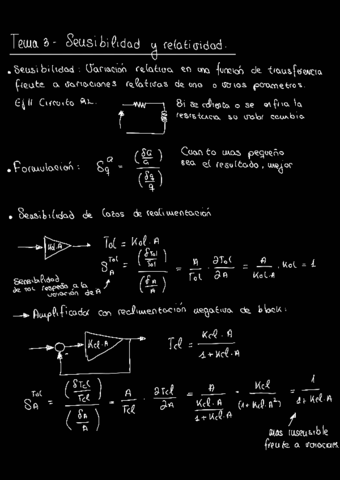 Tema 3 - Sensibilidad y relatividad.
• Sensibilidad: Variación relativa en una función de transferencia
frente a variaciones relativas de uno o varios parametros.
Ej// Circuito RL
Si se calienta o se enfria la
resistencia su valor cambia
• Formulación: S_q^G = (δG/G) / (δq/q)
Cuanto mas pequeño
sea el resultado, mejor
• Sensibilidad de lazos de realimentación
Kol.A
Tol = Kol·A
S_A^Tol = (δTol/Tol) / (δA/A) = A/Tol · ∂Tol/∂A = A/Kol·A · Kol = 1
Sensibilidad
de Tol respecto a la
variación de A
→ Amplificador con realimentación negativa de black:
Kcl·A
Tcl = Kcl·A / 1+Kcl·A
S_A^Tol = (δTcl/Tcl) / (δA/A) = A/Tcl · ∂Tcl/∂A = A / (Kcl·A / 1+Kcl·A) · Kcl / (1+Kcl·A)² = 1 / 1+Kcl·A
mas insensible
frente a variaciones